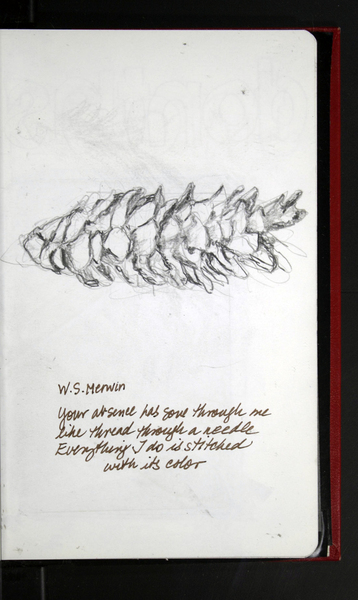 W.S. Merwin
Your absence has gone through me
like thread through a needle
Everything I do is stitched
with its color